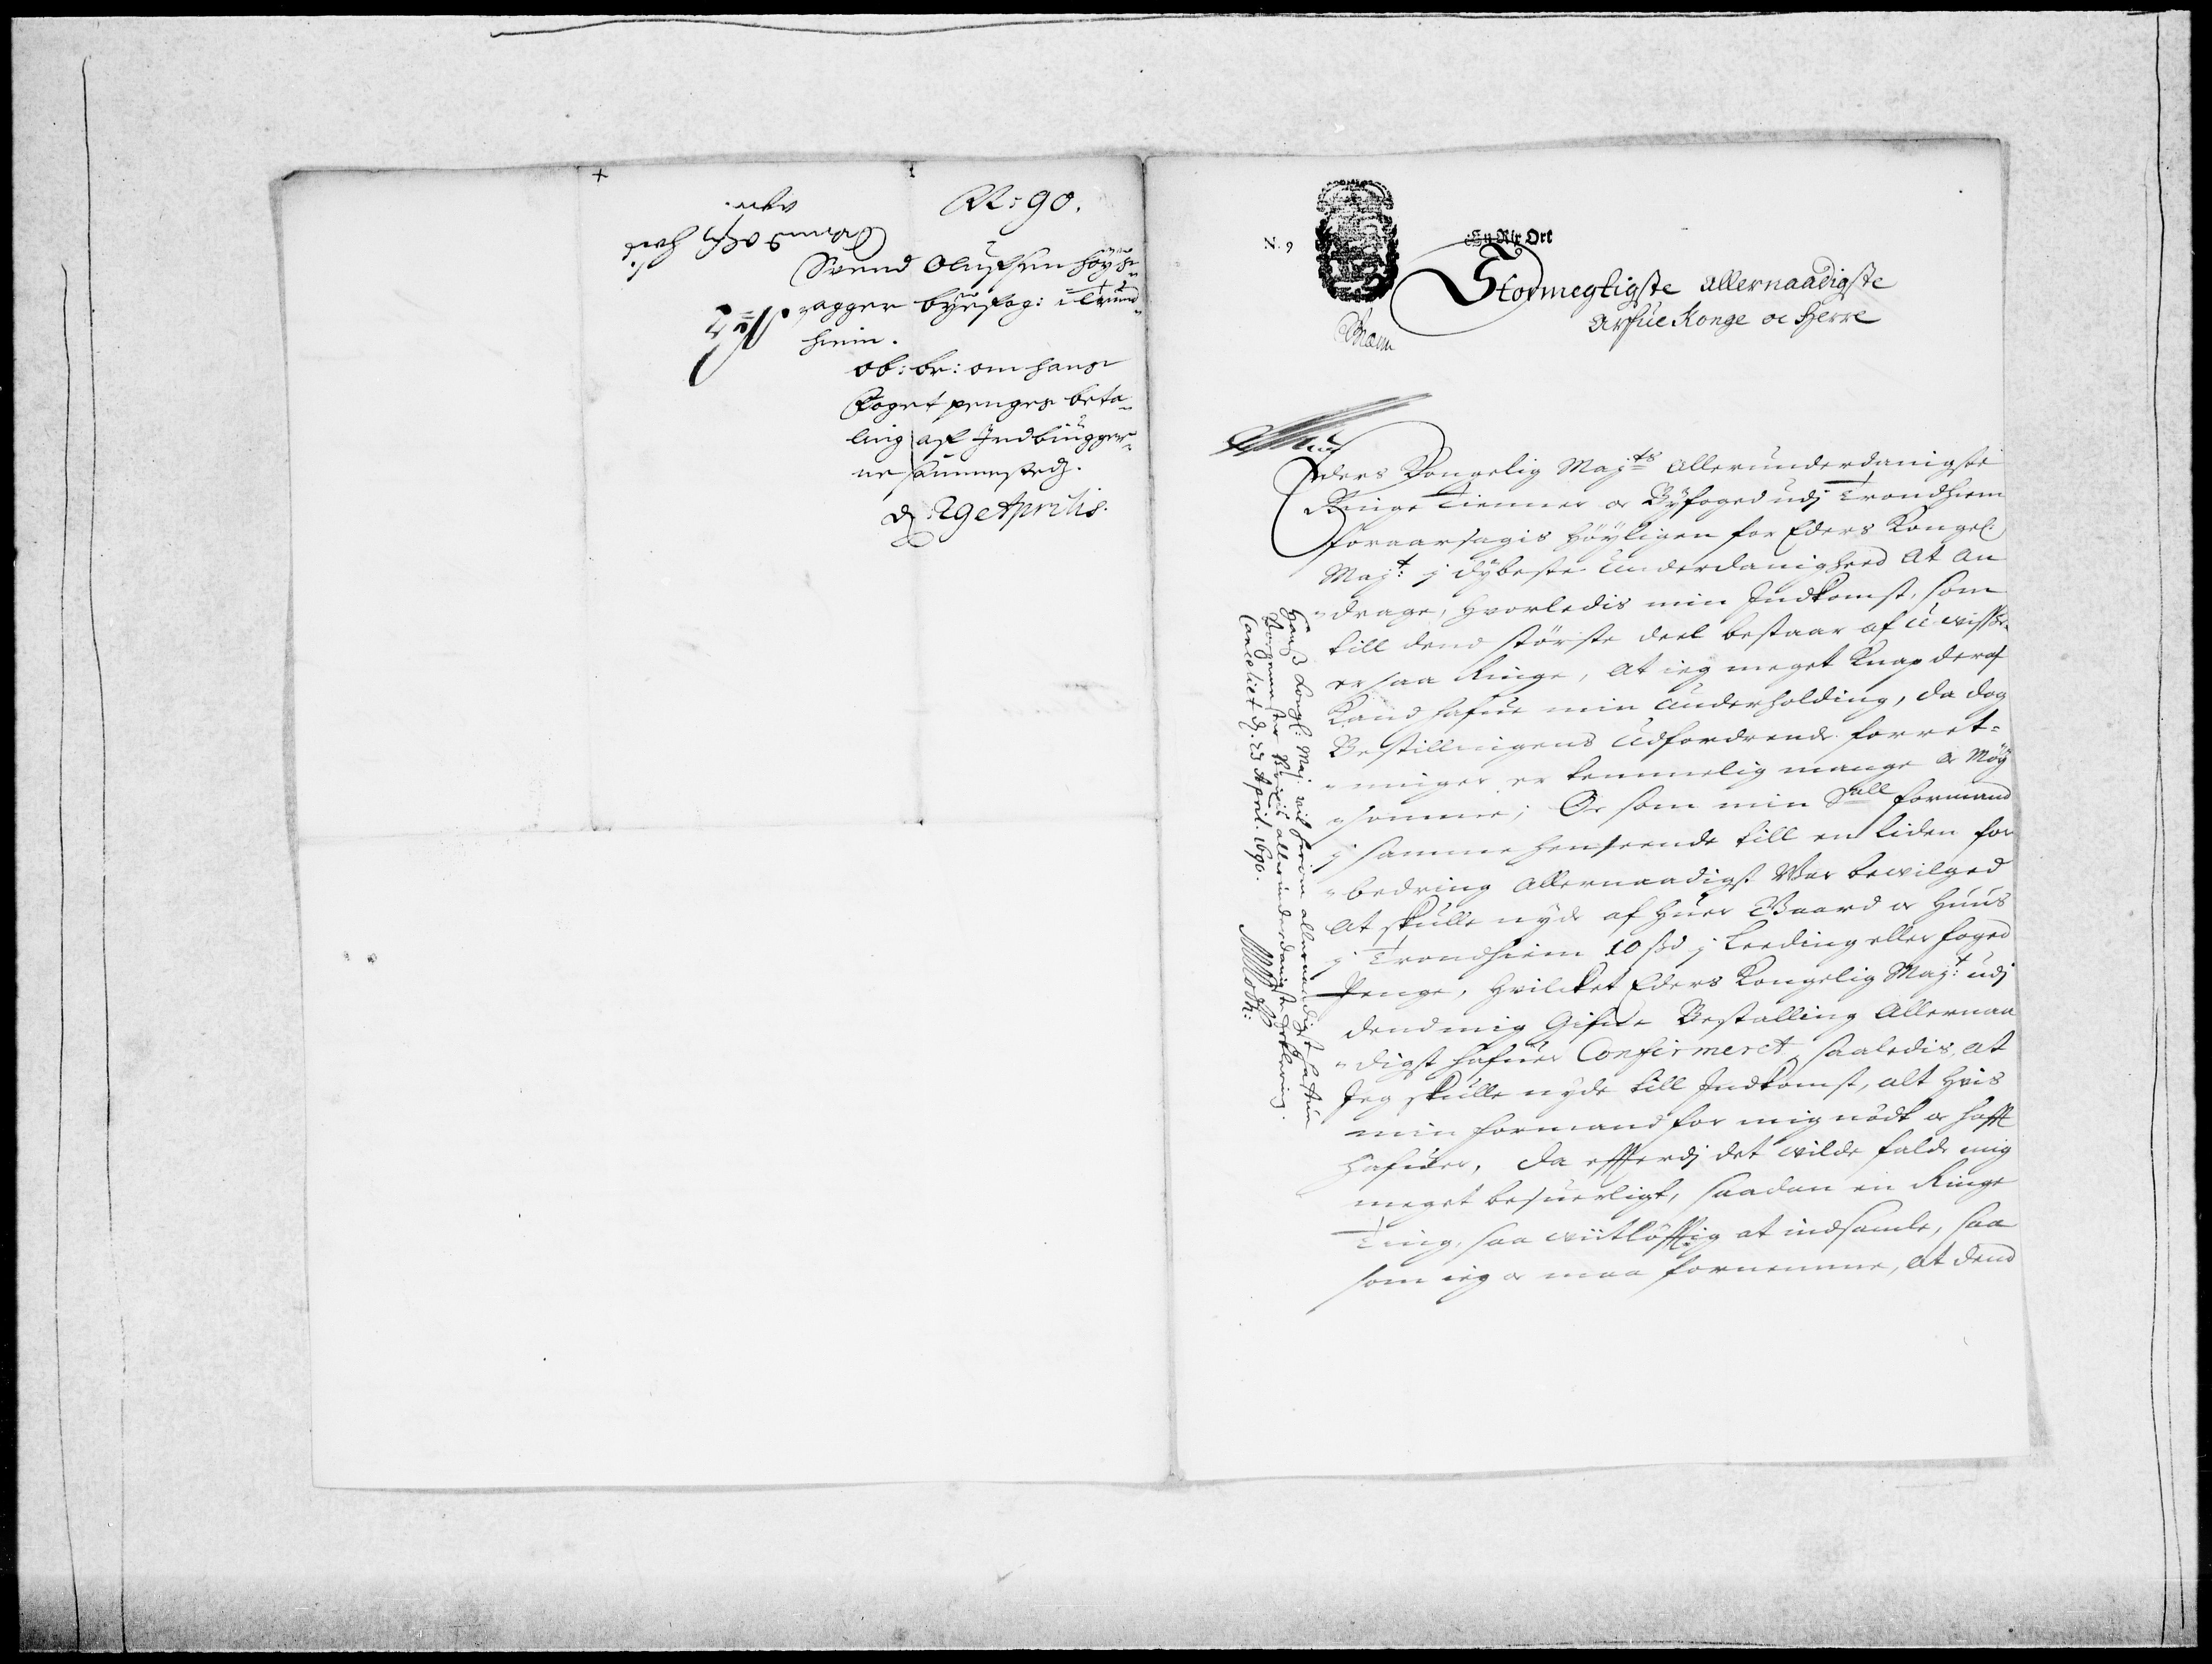 N: 90.
Svend Oluffsen höyse
agger byefog: i Trund
hiem.
ob: br: om hans
Foget penges beta-
ling aff Indbÿgger-
ne sammestedz.
d 29 Aprilis.
N. 9
En Rix Ort
Stormegtigste allernaadigste
Arfue Konge oc Herre
Eders Kongelig Majts allerunderdanigste
Ringe Tienner oc Byfoged udj Trondhiem
foraarsagis höyligen for Eders Kongel:
Majt: j dybeste underdanighed at an
drage, hvorledis min Indkomst, som
till dend störste deel bestaar af u-visse
er saa Ringe, at ieg meget knap deraf
kand hafue min underholding, da dog
Bestillingens udfordrende forret-
ninger er temmelig mange oc möy
somme; Oc som min Sall formand
j samme henseende till en liden for
bedring allernaadigst var bewilged
at skulle nyde af huer Gaard oc Huus
j Trondhiem 10 sk j Leeding eller foged
Penge, hvilcket Eders Kongelig Majt: udj
dend mig Gifne Bestalling Allernaa
digst hafuer Confirmeret, saaledis, at
Jeg skulle nyde till Indkomst, alt hvis
min formand for mig nödt oc hafft
hafuer, da efftersom det wilde falde mig
meget besuerligt, saadan en Ringe
Ting, saa wiitlöfftig at indsamle, saa
som ieg oc maa fornemme, at dend
Hans Kongl: Maj. vil herom allernaadigst hafue
Borgemester allerunderdanigste Erklering.
Cancelliet d. 23 April. 1690.
MMoth: